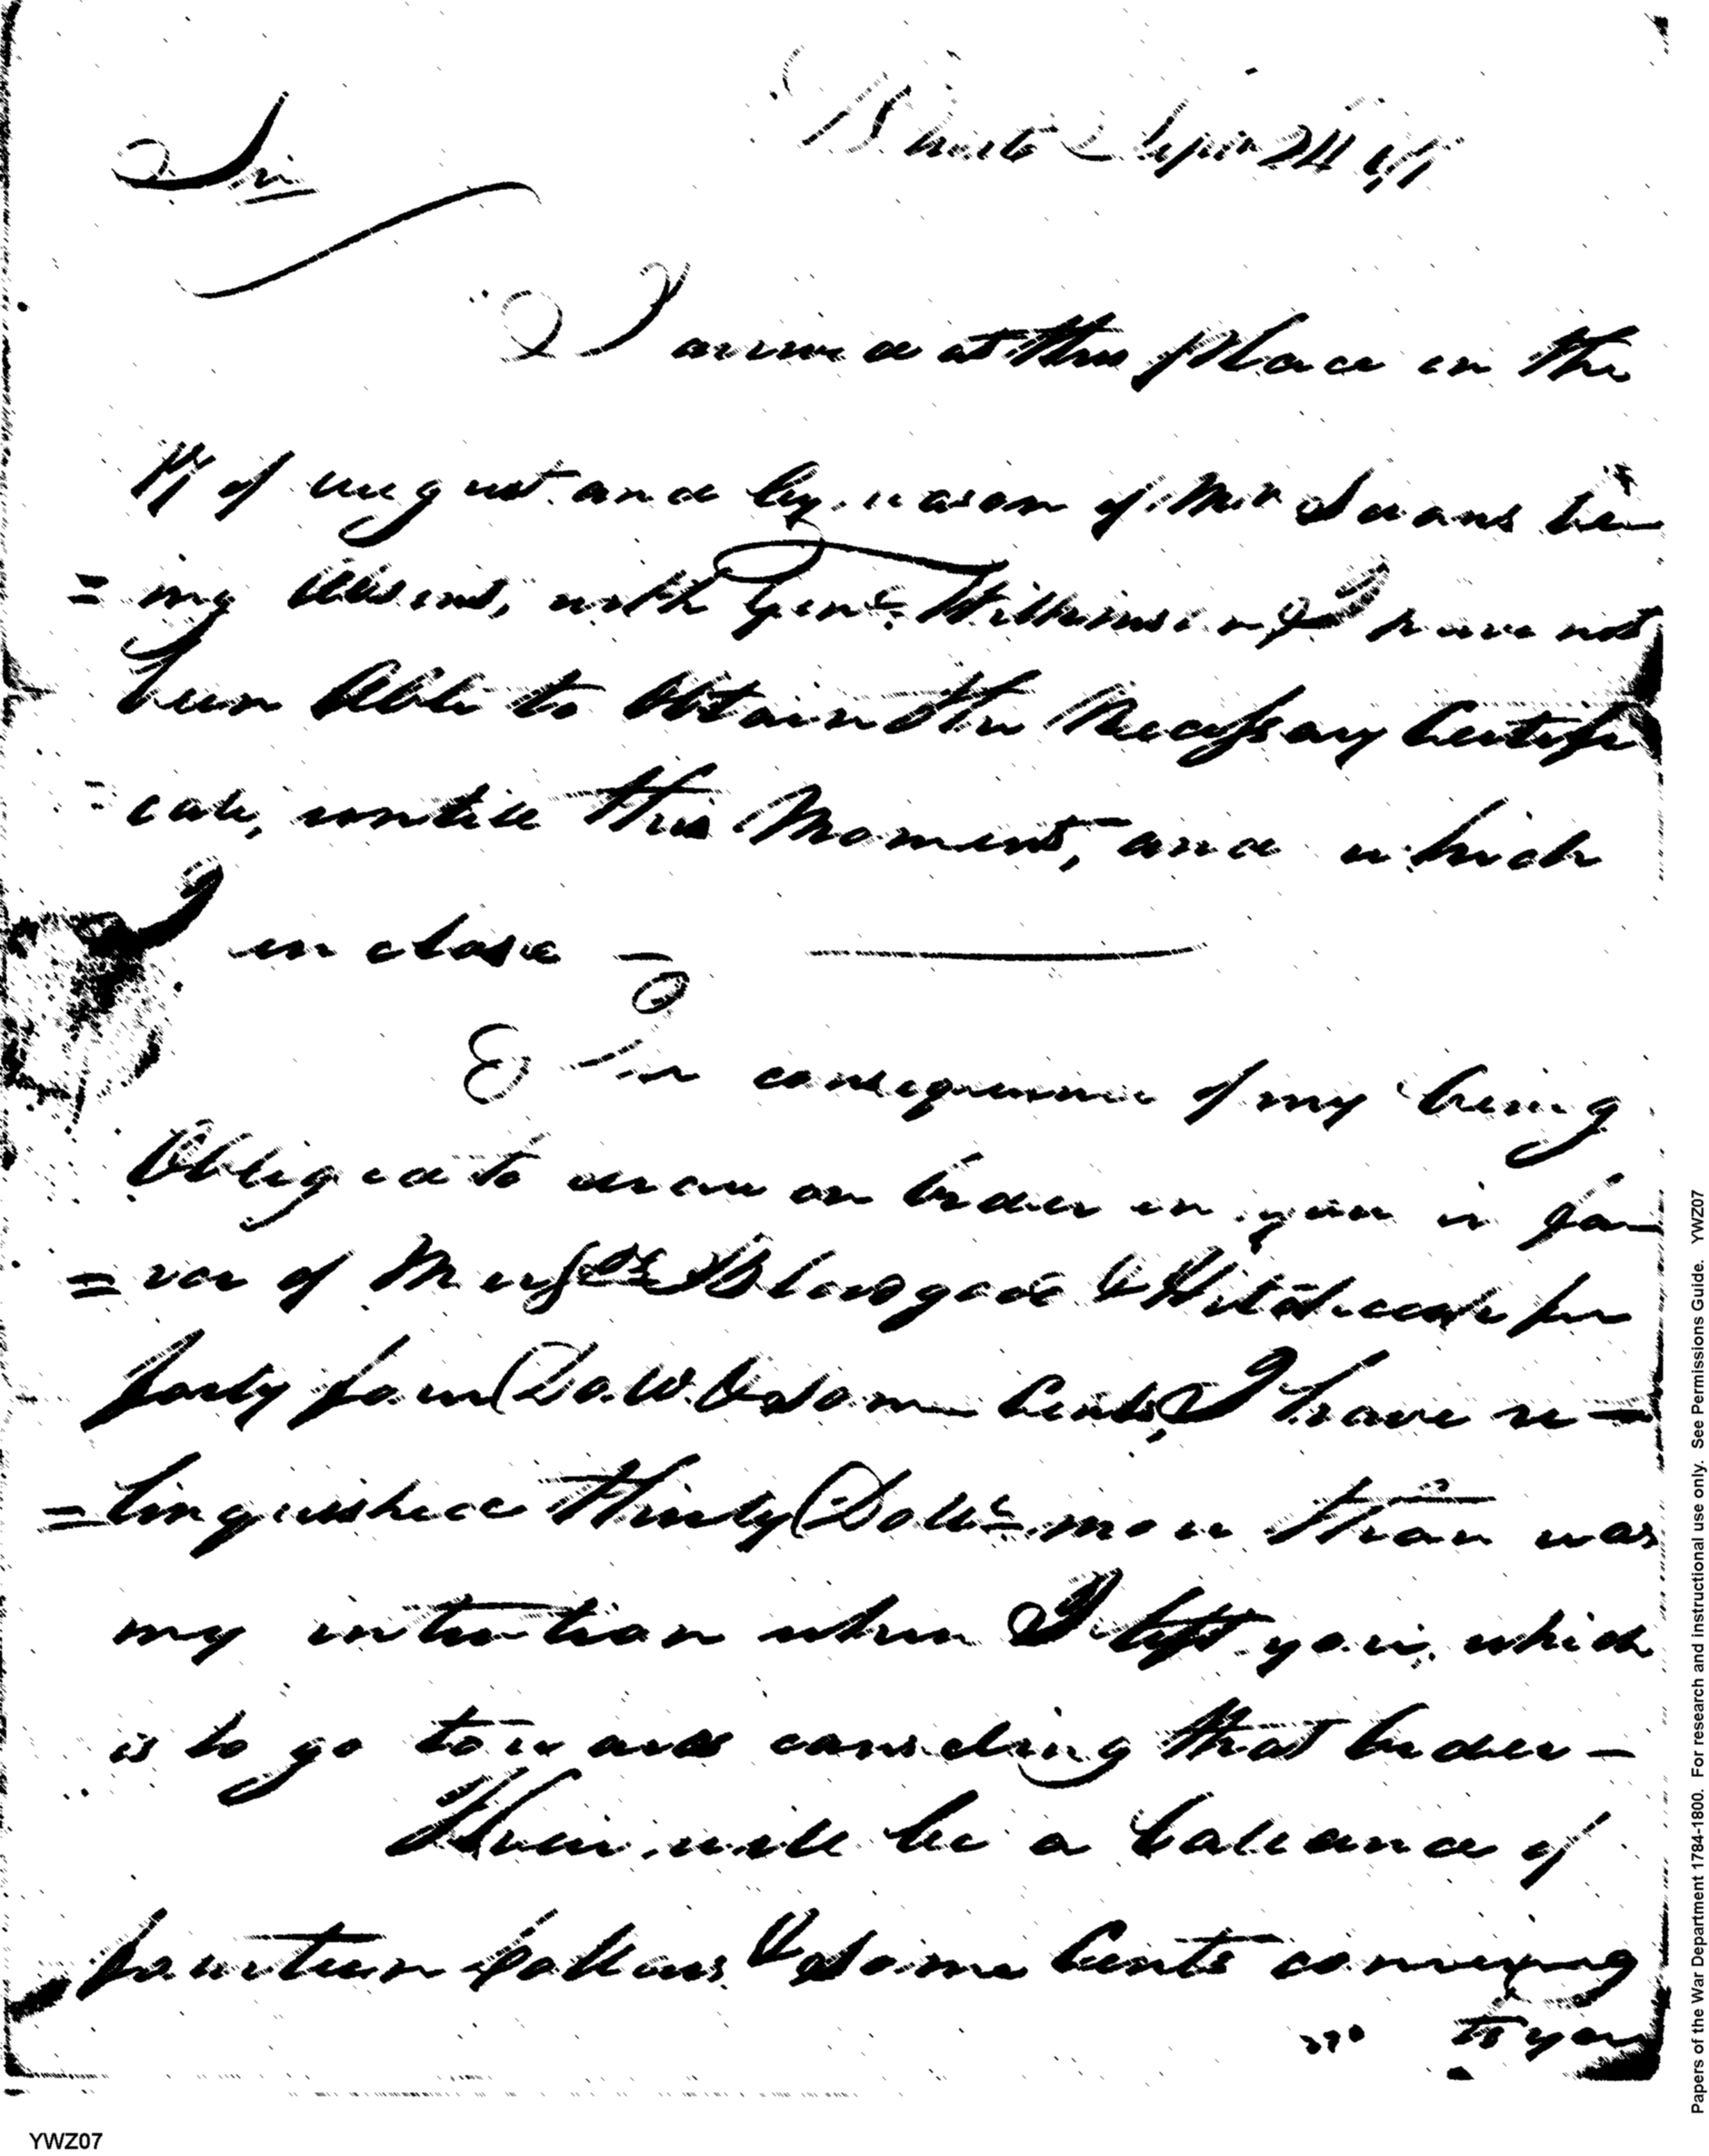 Sir
I arrived at this place on the
of August and by reason of Mr. be
=ing Absent, with Genl. Wilkinson, I have not
been Able to Obtain the Necessary Certifi
=cate, untill this Moment, and which
I inclose —
In consequence of my being
Obliged to draw an order on you in fa
=vor of Messrs. Blodget & for
forty four Doll. & Some Cents, I have re—
=linquished thirty Dolls. more than was
my intention when I left you, which
is to go towards canceling that order —
Their will be a ballance of
fourteen Dollars & Some Cents coming
to you
Papers of the War Department 1784-1800. For research and instructional use only. See Permissions Guide. YWZ07
YWZ07